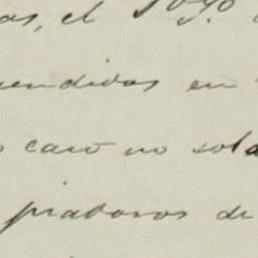 as, el
endidos en
caro no sold
piadosos de